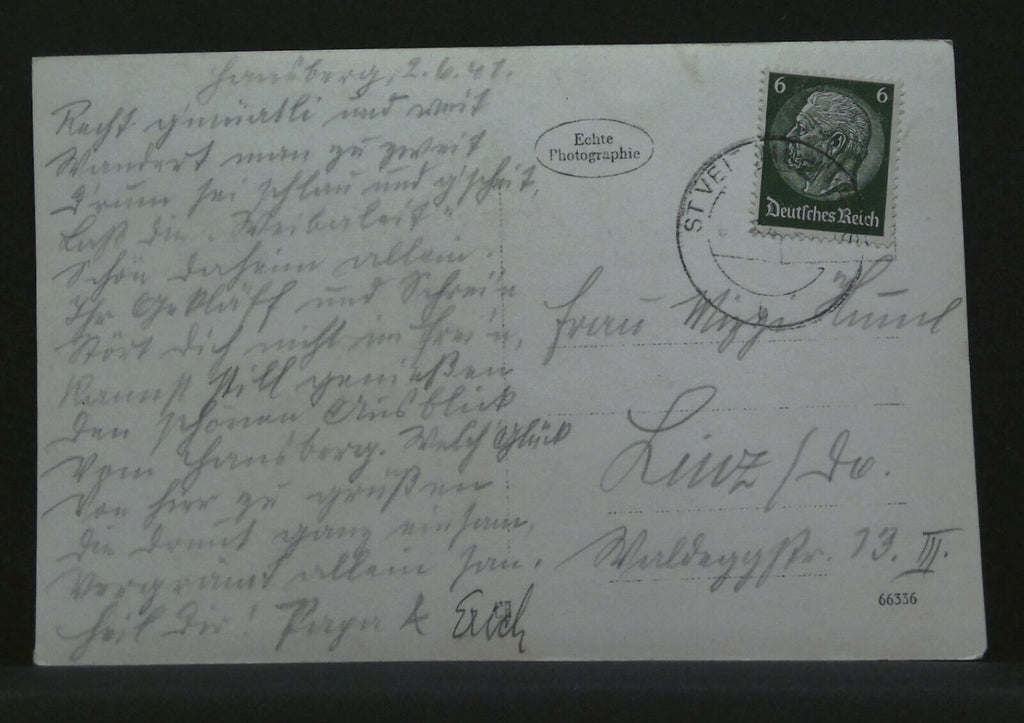 Hansberg, 2.6.41.
Recht gmüatli und weit
Wandert man zu zweit
Drum sei schlau und g'scheit,
Laß die „Weibaleit"
Schön daheim allein.
Ihr Gekläff und Schrei'n
Stört dich nicht im Frei'n,
Kannst still genießen
Den schönen Ausblick
Vom Hansberg. Welch' Glück
Von hier zu grüßen
Die drunt ganz einsam,
Vergrämt allein san.
Heil Dir! Papa & Erich
Echte
Photographie
6 6
Deutsches Reich
ST VEI
Frau Mizzi
Linz / Do.
Waldeggstr. 13. III.
66336